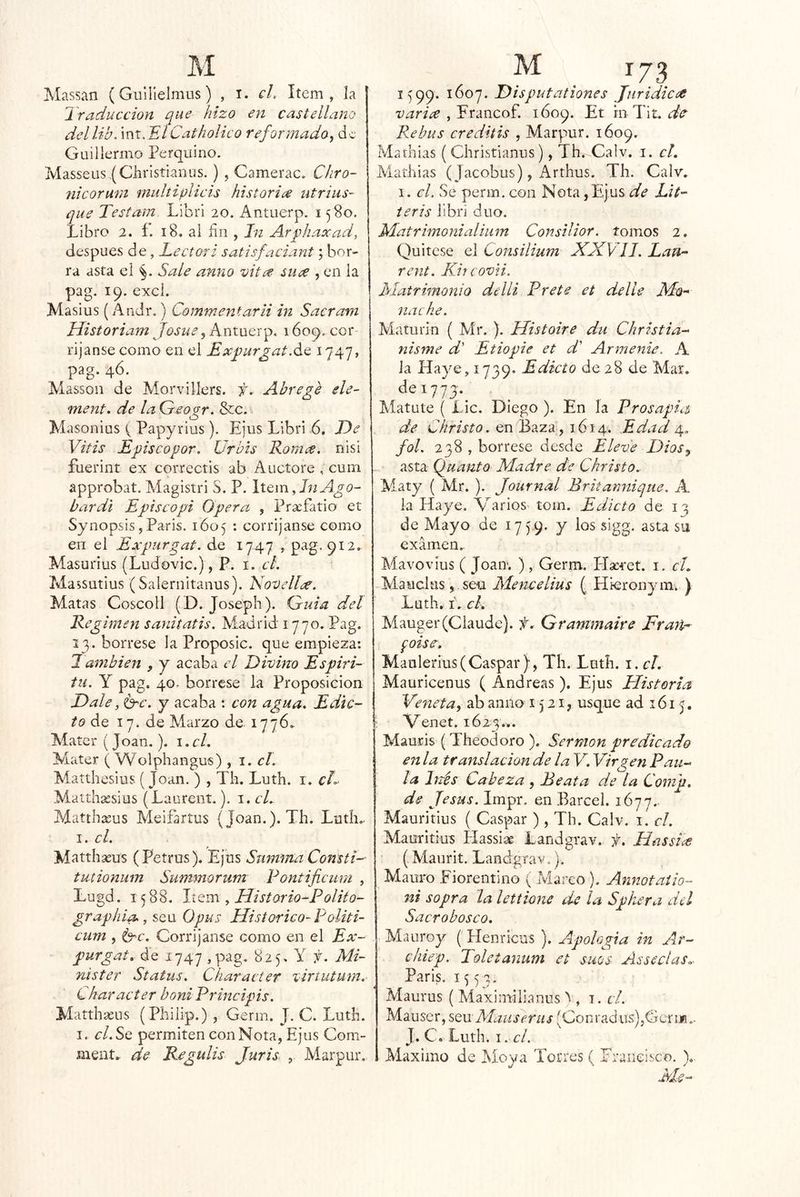 M
Massan (Guilielmus) , 1. cl. Item , la
Traduccion que hizo en castellano
del lib. int. El Catholico reformado, de
Guillermo Perquino.
Masseus (Christianus.) , Camerac. Chro-
nicorum multiplicis historiæ utrius-
que Testam. Libri 20. Antuerp. 1580.
Libro 2. f. 18. al fin , In Arphaxad,
despues de , Lectori satisfaciant ; bor-
ra asta el §. Sale anno vitæ suæ , en la
pag. 19. excl.
Masius ( Andr. ) Commentarii in Sacram
Historiam Josue, Antuerp. 1609. cor-
rijanse como en el Expurgat. de 1747,
pag. 46.
Masson de Morvillers. ℣. Abregè ele-
ment. de la Geogr. &c.
Masonius ( Papyrius ). Ejus Libri 6. De
Vitis Episcopor. Urbis Romæ. nisi
fuerint ex correctis ab Auctore , cum
approbat. Magistri S. P. Item , In Ago-
bardi Episcopi Opera , Præfatio et
Synopsis, Paris. 1605 : corrijanse como
en el Expurgat. de 1747 , pag. 912.
Masurius (Ludovic.) , P. 1. cl.
Massutius ( Salernitanus). Novellæ.
Matas Coscoll (D. Joseph). Guia del
Regimen sanitatis. Madrid 1770. Pag.
13. borrese la Proposic. que empieza:
Tambien , y acaba el Divino Espiri-
tu. Y pag. 40. borrese la Proposicion
Dale, &c. y acaba : con agua. Edic-
to de 17. de Marzo de 1776.
Mater ( Joan. ). 1. cl.
Mater ( Wolphangus) , 1. cl.
Matthesius ( Joan. ) , Th. Luth. 1. cl.
Matthæsius (Laurent. ). 1. cl.
Matthæus Meifartus (Joan.). Th. Luth.
1. cl.
Matthæus (Petrus). Ejus Summa Consti-
tutionum Summorum Pontificum ,
Lugd. 1588. Item , Historio-Polito-
graphia , seu Opus Historico-Politi-
cum , &c. Corrijanse como en el Ex-
purgat. de 1747 , pag. 825. Y ℣. Mi-
nister Status. Character virtutum.
Character boni Principis.
Matthæus ( Philip.) , Germ. J. C. Luth.
1. cl. Se permiten con Nota, Ejus Com-
ment. de Regulis Juris , Marpur.
M 173
1599. 1607. Disputationes Juridicæ
variæ , Francof. 1609. Et in Tit. de
Rebus creditis , Marpur. 1609.
Mathias ( Christianus) , Th. Calv. 1. cl.
Mathias (Jacobus), Arthus. Th. Calv.
1. cl. Se perm. con Nota , Ejus de Lit-
teris libri duo.
Matrimonialium Consilior. tomos 2.
Quitese el Consilium XXVII. Lau-
rent. Kircovii.
Matrimonio delli Prete et delle Mo-
nache.
Maturin ( Mr. ). Histoire du Christia-
nisme d' Etiopie et d' Armenie. A
la Haye, 1739. Edicto de 28 de Mar.
de 1773.
Matute ( Lic. Diego ). En la Prosapia
de Christo. en Baza , 1614. Edad 4.
fol. 238 , borrese desde Eleve Dios,
asta Quanto Madre de Christo.
Maty ( Mr. ). Journal Britannique. A
la Haye. Varios tom. Edicto de 13
de Mayo de 1759. y los sigg. asta su
exàmen.
Mavovius ( Joan. ) , Germ. Hæret. 1. cl.
Mauclus , seu Mencelius ( Hieronym. )
Luth. 1. cl.
Mauger(Claude). ℣. Grammaire Fran-
çoise.
Maulerius(Caspar), Th. Luth. 1. cl.
Mauricenus ( Andreas ). Ejus Historia
Veneta, ab anno 1521, usque ad 1615.
Venet. 1623...
Mauris ( Theodoro ). Sermon predicado
en la translacion de la V. Virgen Pau-
la Inés Cabeza , Beata de la Comp.
de Jesus. Impr. en Barcel. 1677.
Mauritius ( Caspar ) , Th. Calv. 1. cl.
Mauritius Hassiæ Landgrav. ℣. Hassiæ
( Maurit. Landgrav. ).
Mauro Fiorentino ( Marco ). Annotatio-
ni sopra la lettione de la Sphera del
Sacrobosco.
Mauroy ( Henricus ). Apologia in Ar-
chiep. Toletanum et suos Asseclas.
Paris. 1553.
Maurus ( Maximilianus ) , 1. cl.
Mauser, seu Mauserus (Conradus), Germ.
J. C. Luth. 1. cl.
Maximo de Moya Torres ( Francisco. ).
Me-